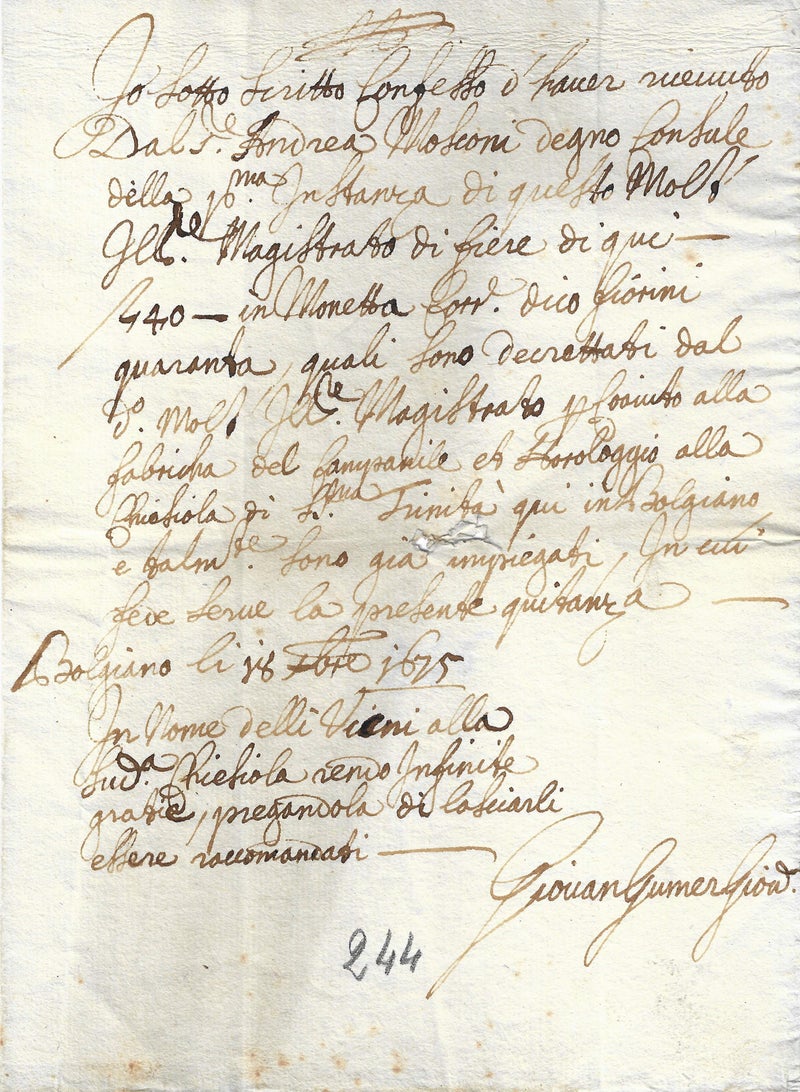 Io sotto scritto Confesso d'haver riceuuto
Dal S.r Andrea Mosconi degno Consule
della p.ma Instanza di questo Molt'
Ill.re Magistrato di fiere di qui —
40 — in Monetta Corr.e dico fiorini
quaranta, quali sono decrettati dal
d.o Molt' Ill.re Magistrato p alla
fabricha del Campanile et Horologgio alla
Chiesiola di S.ma Trinità qui in Bolgiano,
e talm.te sono già impiegati, In cui
fede serue la presente quitanza —
Bolgiano li 18 1675
In Nome delli Vicini alla
Sud.a Chiesiola rendo Infinite
gratie, pregandola di lasciarli
essere raccomandati —
Giouan Gumer
244